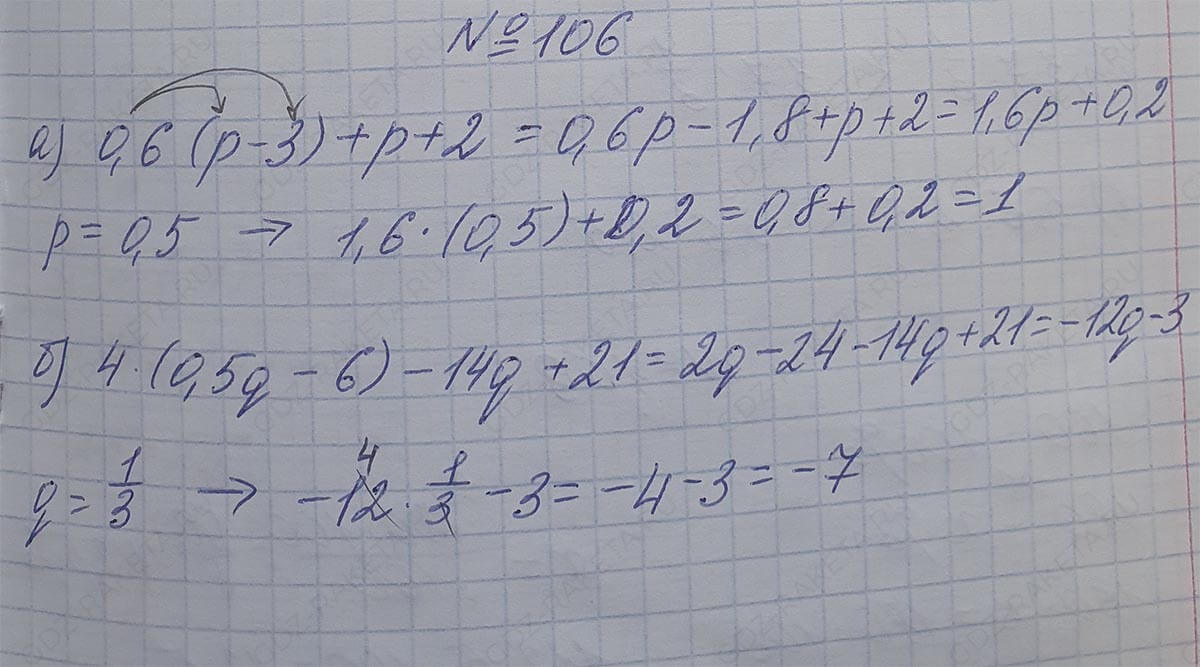 №106
а) 0,6 (p-3)+p+2 = 0,6p-1,8+p+2=1,6p+0,2
p=0,5 → 1,6·(0,5)+0,2=0,8+0,2=1
б) 4·(0,5q-6)-14q+21=2q-24-14q+21=-12q-3
q=1/3 → -12·1/3-3=-4-3=-7
4